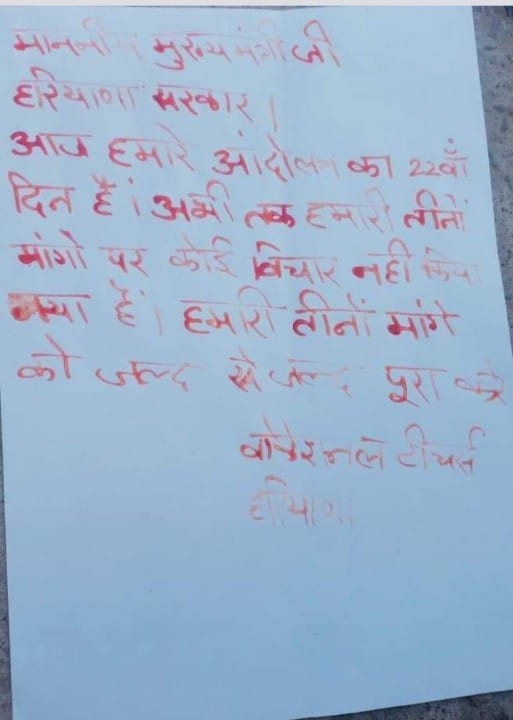 माननीय मुख्यमंत्री जी
हरियाणा सरकार।
आज हमारे आंदोलन का 22वाँ
दिन हैं। अभी तक हमारी तीनों
मांगो पर कोई विचार नही किया
गया हैं। हमारी तीनों मांगे
को जल्द से जल्द पूरा करे
वोकेशनल टीचर्स
हरियाणा